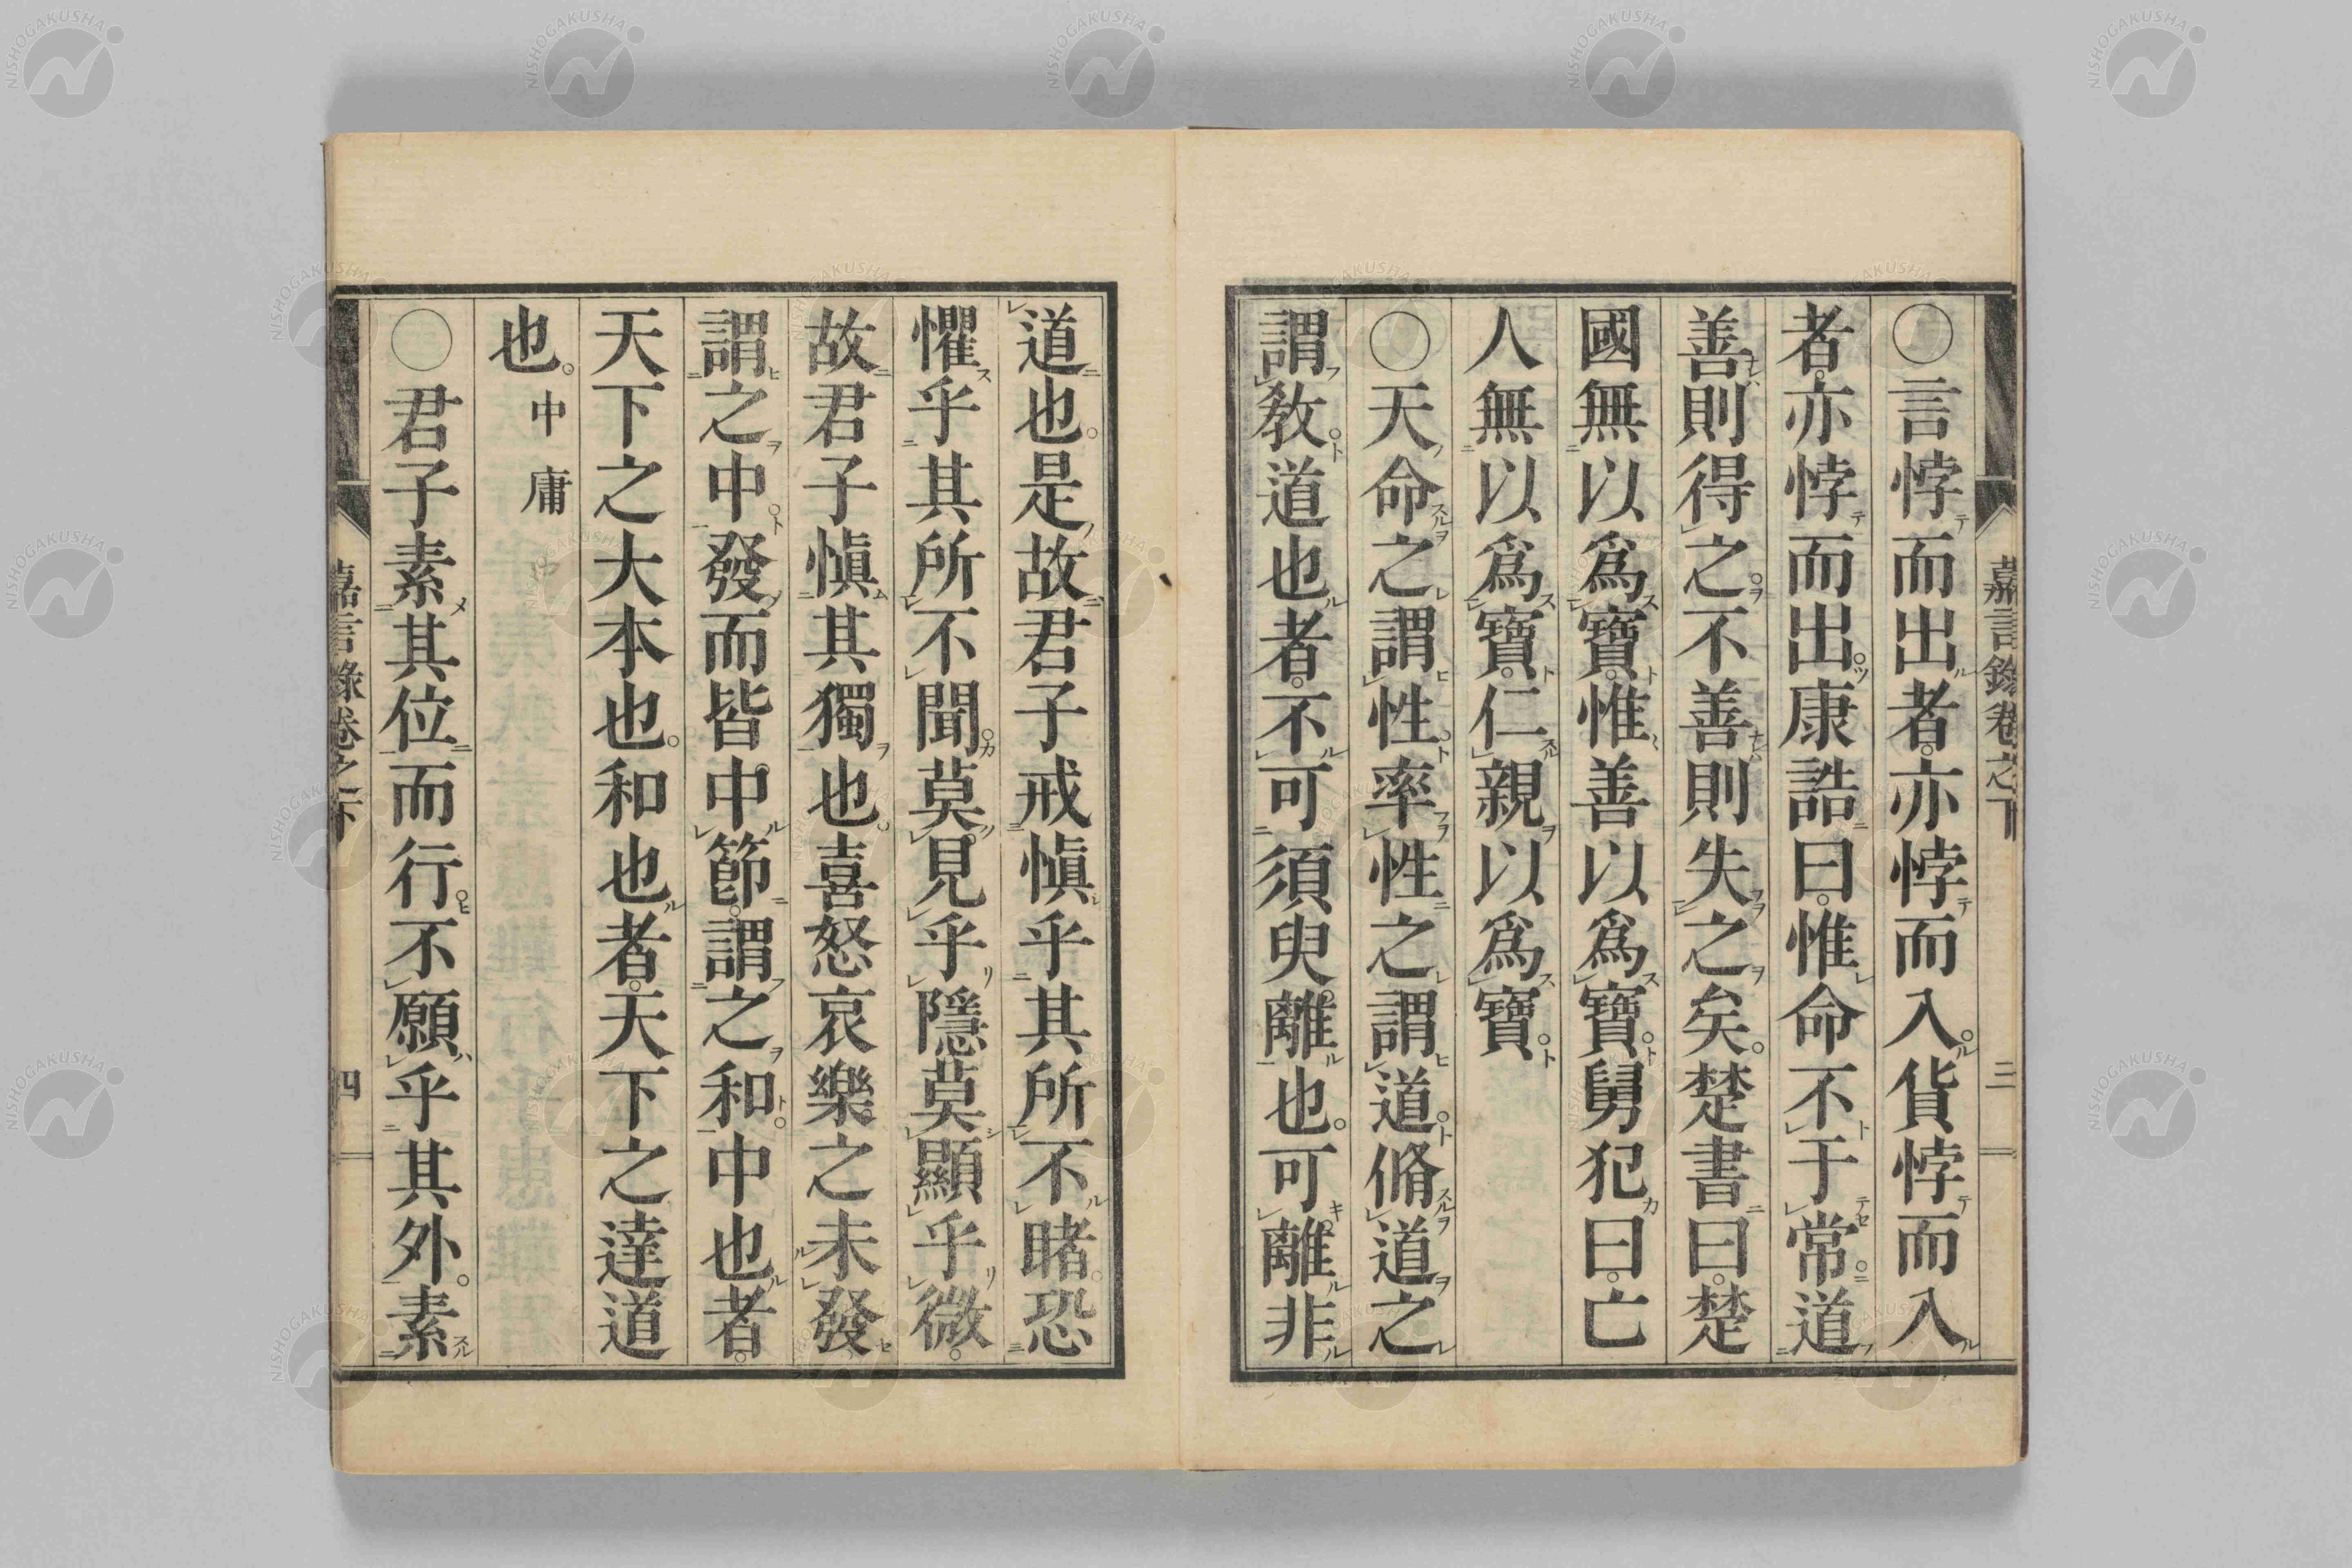 嘉言錄卷之下 三
〇言悖而出者亦悖而入貨悖而入
者亦悖而出康誥曰惟命不于常道
善則得之不善則失之矣楚書曰楚
國無以爲寶惟善以爲寶舅犯曰亡
人無以爲寶仁親以爲寶
〇天命之謂性率性之謂道脩道之
謂敎道也者不可須臾離也可離非
道也是故君子戒愼乎其所不睹恐
懼乎其所不聞莫見乎隱莫顯乎微
故君子愼其獨也喜怒哀樂之未發
謂之中發而皆中節謂之和中也者
天下之大本也和也者天下之達道
也。中庸
〇君子素其位而行不願乎其外素
嘉言錄卷之下 四
NISHOGAKUSHA